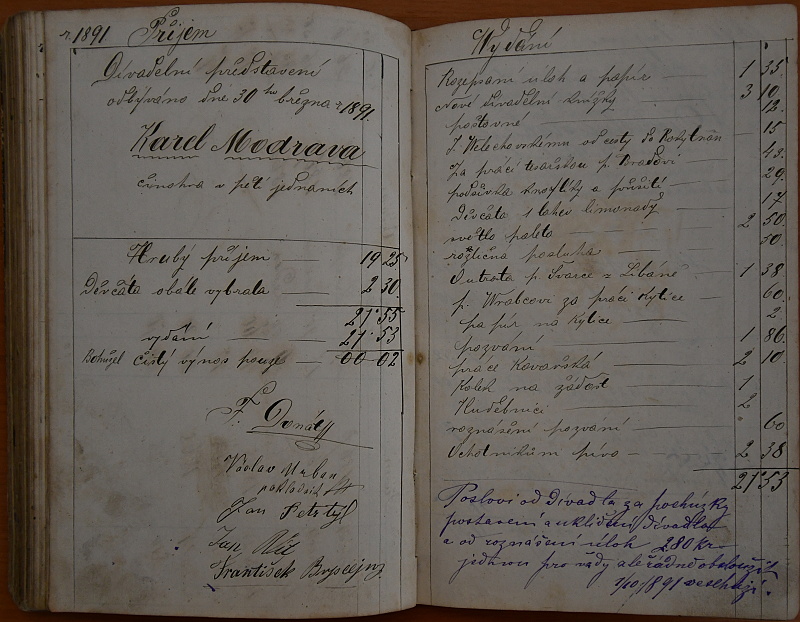 r. 1891 Příjem
Divadelní představení
odbýváno dne 30ho března r 1891.
Karel Modrava
činohra v pěti jednáních
Hrubý příjem — 19 25
Děvčata obále vybrala — 2 30.
21 55
vydání — 21 53
Bohužel čistý výnos pouze — 00 02
F. Donát
Václav Urban
pokladník
Jan Petrtýl
Jan
František
Vydání
Rozepsaní úloh a papír — 1 35.
Nové divadelní knížky 3 10.
poštovné — 12.
od cesty do Rokytnan — 15
Za práci tesařskou p. — 43.
podšívka knoflíky a 29.
Děvčata 1 lahev limonady 17
světlo — 2 50.
různá posluha 50.
Outrata p. Švarce z Libáně — 1 38
p. Wrabcovi za práci kytice — 60.
papír na kytice — 2
pozvání — 1 86.
práce Kovařská — 2 10
Kolek na žádost — 1
Hudebníci — 2
roznášení pozvání — 60
Ochotníkům pivo — 2 38
21 53
Poslovi od Divadla za pochůzky
postavení a uklidění divadla
a od roznášení úloh 280 kr
jednou pro vždy ale řádně
1891